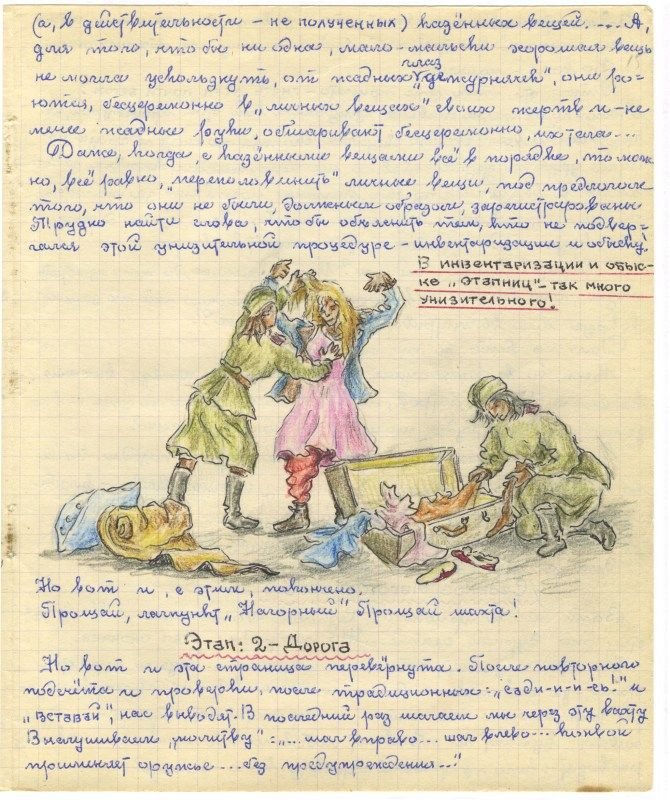 (а, в действительности – не полученных) казённых вещей.... А,
для того, что бы ни одна, мало-мальски хорошая вещь
не могла ускользнуть, от жадных глаз „дежурнячек“, они ро-
ются, бесцеремонно в „личных вещах“ своих жертв и – не
менее жадные руки, обшаривают бесцеремонно, их тела...
Даже, когда, с казёнными вещами всё в порядке, то мож-
но, всё равно, „переполовинить“ личные вещи, под предлогом
того, что они не были, должным образом, зарегистрированы
Трудно найти слова, что бы объяснить тем, кто не подвер-
гался этой унизительной процедуре – инвентаризации и обыску.
В инвентаризации и обыс-
ке „этапниц“ – так много
унизительного!
Но вот и, с этим, покончено.
Прощай, лагпункт „Нагорный“ Прощай шахта!
Этап: 2 – Дорога
Но вот и эта страница перевёрнута. После повторного
подсчёта и проверки, после традиционных: „сади-и-и-сь!“ и
„вставай“, нас выводят. В последний раз шагаем мы через эту вахту
Выслушиваем „молитву“: „... шаг вправо... шаг влево... конвой
применяет оружье... без предупреждения...“